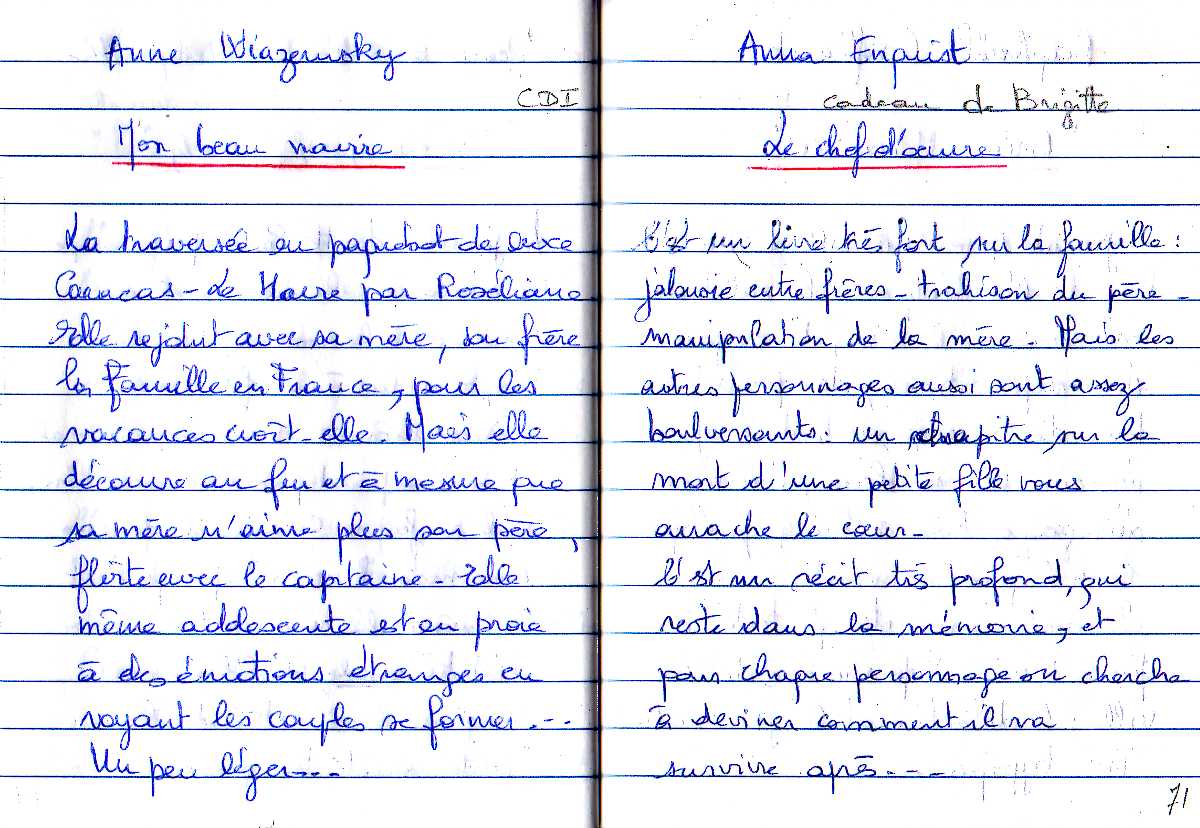 Anne Wiazemsky
CDI
Mon beau navire
La traversée en paquebot de luxe
Caracas - Le Havre par Roséliane
Elle rejoint avec sa mère, son frère
la famille en France, pour les
vacances croit-elle. Mais elle
découvre au fur et à mesure que
sa mère n'aime plus son père,
flirte avec le capitaine - Elle
même adolescente est en proie
à des émotions étranges en
voyant les couples se former...
Un peu léger...
Anna Enquist
cadeau de Brigitte
Le chef d'oeuvre
C'est un livre très fort sur la famille :
jalousie entre frères - trahison du père -
manipulation de la mère - Mais les
autres personnages aussi sont assez
bouleversants : un chapitre sur la
mort d'une petite fille vous
arrache le cœur -
C'est un récit très profond, qui
reste dans la mémoire, et
pour chaque personnage on cherche
à deviner comment il va
survivre après - - -
71